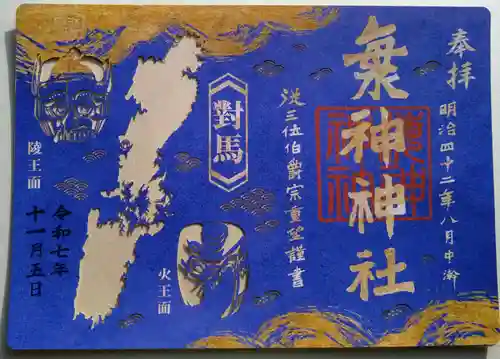 奉拝
明治四十二年八月中澣
海神神社
海神
神社
従三位伯爵宗重望謹書
對馬
火王面
陵王面
令和七年
十一月五日